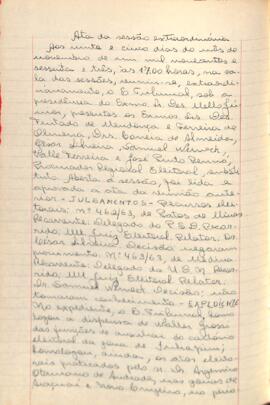 Ata da sessão extraordinária
Aos vinte e cinco dias do mês de
novembro de um mil novecentos e
sessenta e três, às 17,00 horas, na sa-
la das sessões, reuniu-se, extraordi-
nariamente, o E. Tribunal, sob a
presidência do Exmo. Sr. Des. Mello Jú-
nior, presentes os Exmos. Srs. Des.
Furtado de Mendonça e Ferreira de
Oliveira, Drs. Correia de Almeida,
Cesar Silveira, Samuel Werneck,
Valle Ferreira e José Pinto Renno,
Procurador Regional Eleitoral, substi-
tuto. Aberta a sessão, foi lida e
aprovada a ata da reunião ante-
rior. - JULGAMENTOS - Recursos elei-
torais: nº 462/63, de Patos de Minas
Recorrente: Delegado do P.S.D. Recor-
rido, MM. Juiz Eleitoral. Relator: Dr.
Cesar Silveira. Decisão: negaram
provimento. Nº 463/63, de Medina
Recorrente: Delegado da U.D.N. Recor-
rido, MM. Juiz Eleitoral. Relator:
Dr. Samuel Werneck. Decisão: não
tomaram conhecimento. - EXPEDIENTE
No expediente, o E. Tribunal, homo-
logou a dispensa de Walter Grossi
das funções de auxiliar do cartório
eleitoral da zona de
homologou, ainda, os atos eleito-
rais praticados pelo Dr. Argemiro
Otaviano de Andrade, nas zonas de
e Novo Cruzeiro, no perío-